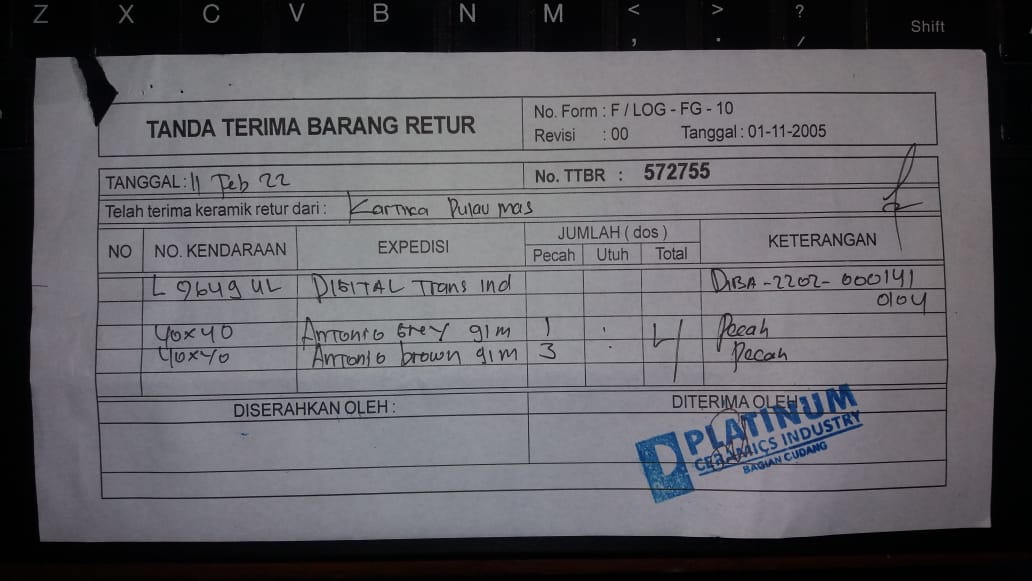 Z X C V B N M < > ?
, . /
Shift
TANDA TERIMA BARANG RETUR
No. Form : F / LOG - FG - 10
Revisi : 00 Tanggal : 01-11-2005
TANGGAL : 11 Feb 22
No. TTBR : 572755
Telah terima keramik retur dari : Kartika Pulau mas
NO NO. KENDARAAN EXPEDISI JUMLAH ( dos ) KETERANGAN
Pecah Utuh Total
L 9649 UL DIGITAL Trans Ind DIBA-2202-000141
0104
40x40 Antonio Grey gim 1 Pecah
40x40 Antonio brown gim 3 4 Pecah
DISERAHKAN OLEH :
DITERIMA OLEH
PLATINUM
CERAMICS INDUSTRY
BAGIAN GUDANG